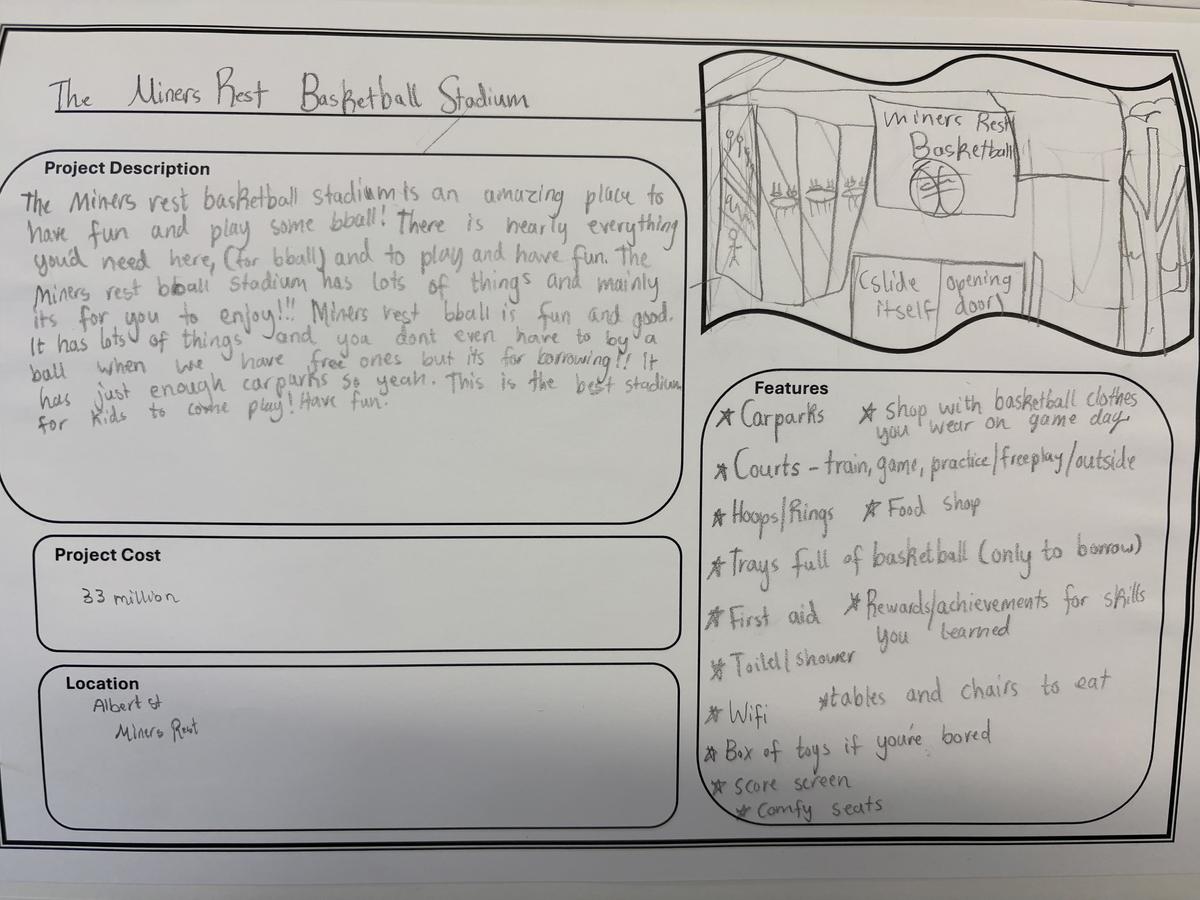 The Miners Rest Basketball Stadium
Project Description
The Miners rest basketball stadium is an amazing place to
have fun and play some bball! There is nearly everything
you'd need here, (for bball) and to play and have fun. The
Miners rest bball stadium has lots of things and mainly
its for you to enjoy!!! Miners rest bball is fun and good.
It has lots of things and you dont even have to by a
ball when we have free ones but its for borrowing!! It
has just enough carparks so yeah. This is the best stadium
for kids to come play! Have fun.
Project Cost
33 million
Location
Albert st
Miners Rest
Miners Rest
Basketball
(slide opening
itself door)
Features
★ Carparks ★ Shop with basketball clothes
you wear on game day
★ Courts - train, game, practice/freeplay/outside
★ Hoops/Rings ★ Food shop
★ Trays full of basketball (only to borrow)
★ First aid ★ Rewards/achievements for skills
you learned
★ Toilet/shower
★ tables and chairs to eat
★ Wifi
★ Box of toys if you're bored
★ score screen
★ Comfy seats